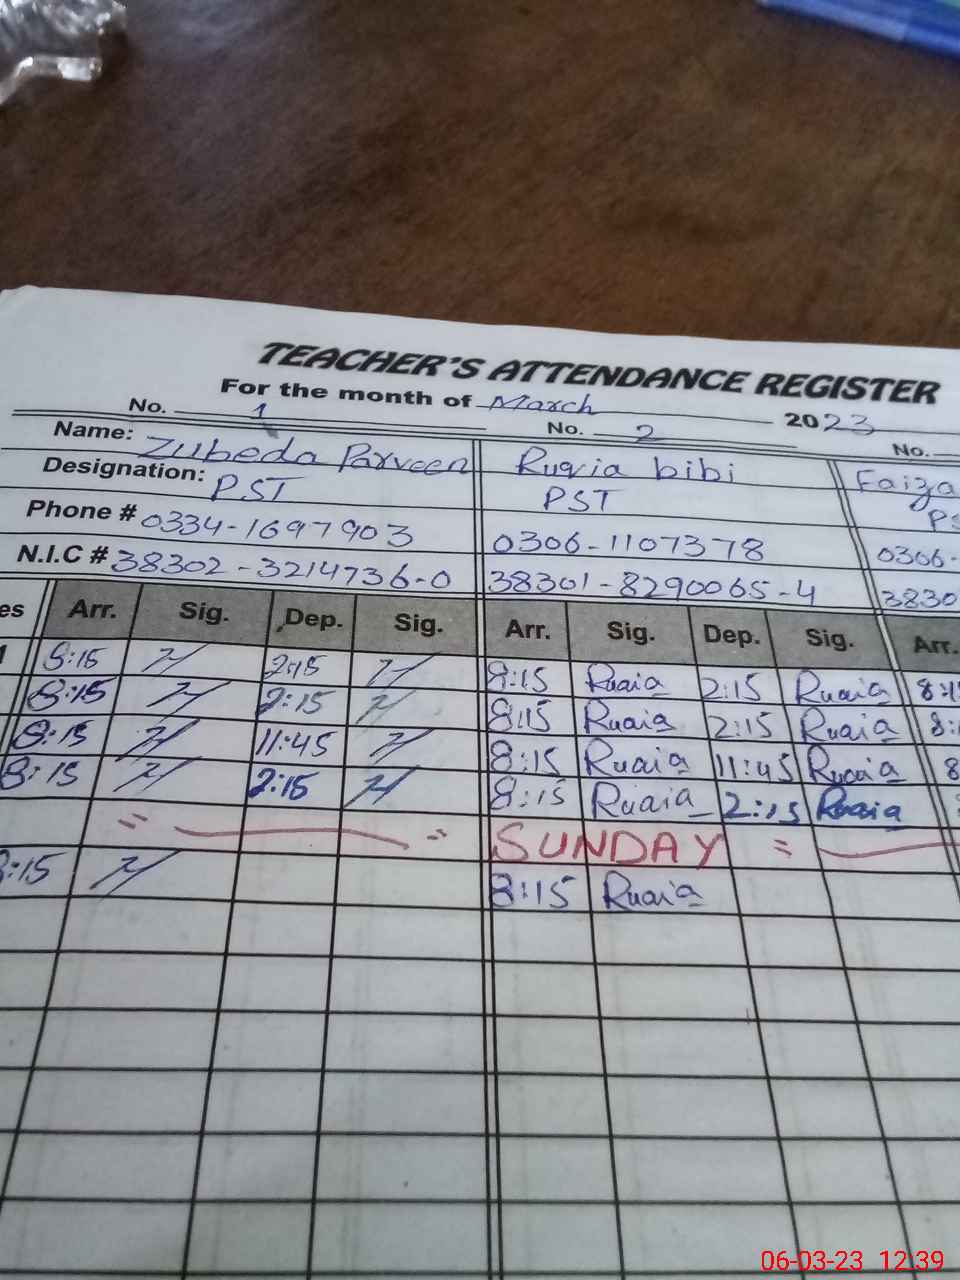 TEACHER'S ATTENDANCE REGISTER
For the month of March 2023
No. 1 No. 2 No.
Name: Zubeda Parveen Ruqia bibi Faiza
Designation: PST PST PS
Phone # 0334-1697903 0306-1107378 0306-
N.I.C # 38302-3214736-0 38301-8290065-4 3830
es Arr. Sig. Dep. Sig. Arr. Sig. Dep. Sig. Arr.
8:15 2:15 8:15 Ruqia 2:15 Ruqia 8:1
8:15 2:15 8:15 Ruqia 2:15 Ruqia 8:
8:15 11:45 8:15 Ruqia 11:45 Ruqia 8
8:15 2:15 8:15 Ruqia 2:15 Ruqia
= = SUNDAY =
8:15 8:15 Ruqia
06-03-23 12:39